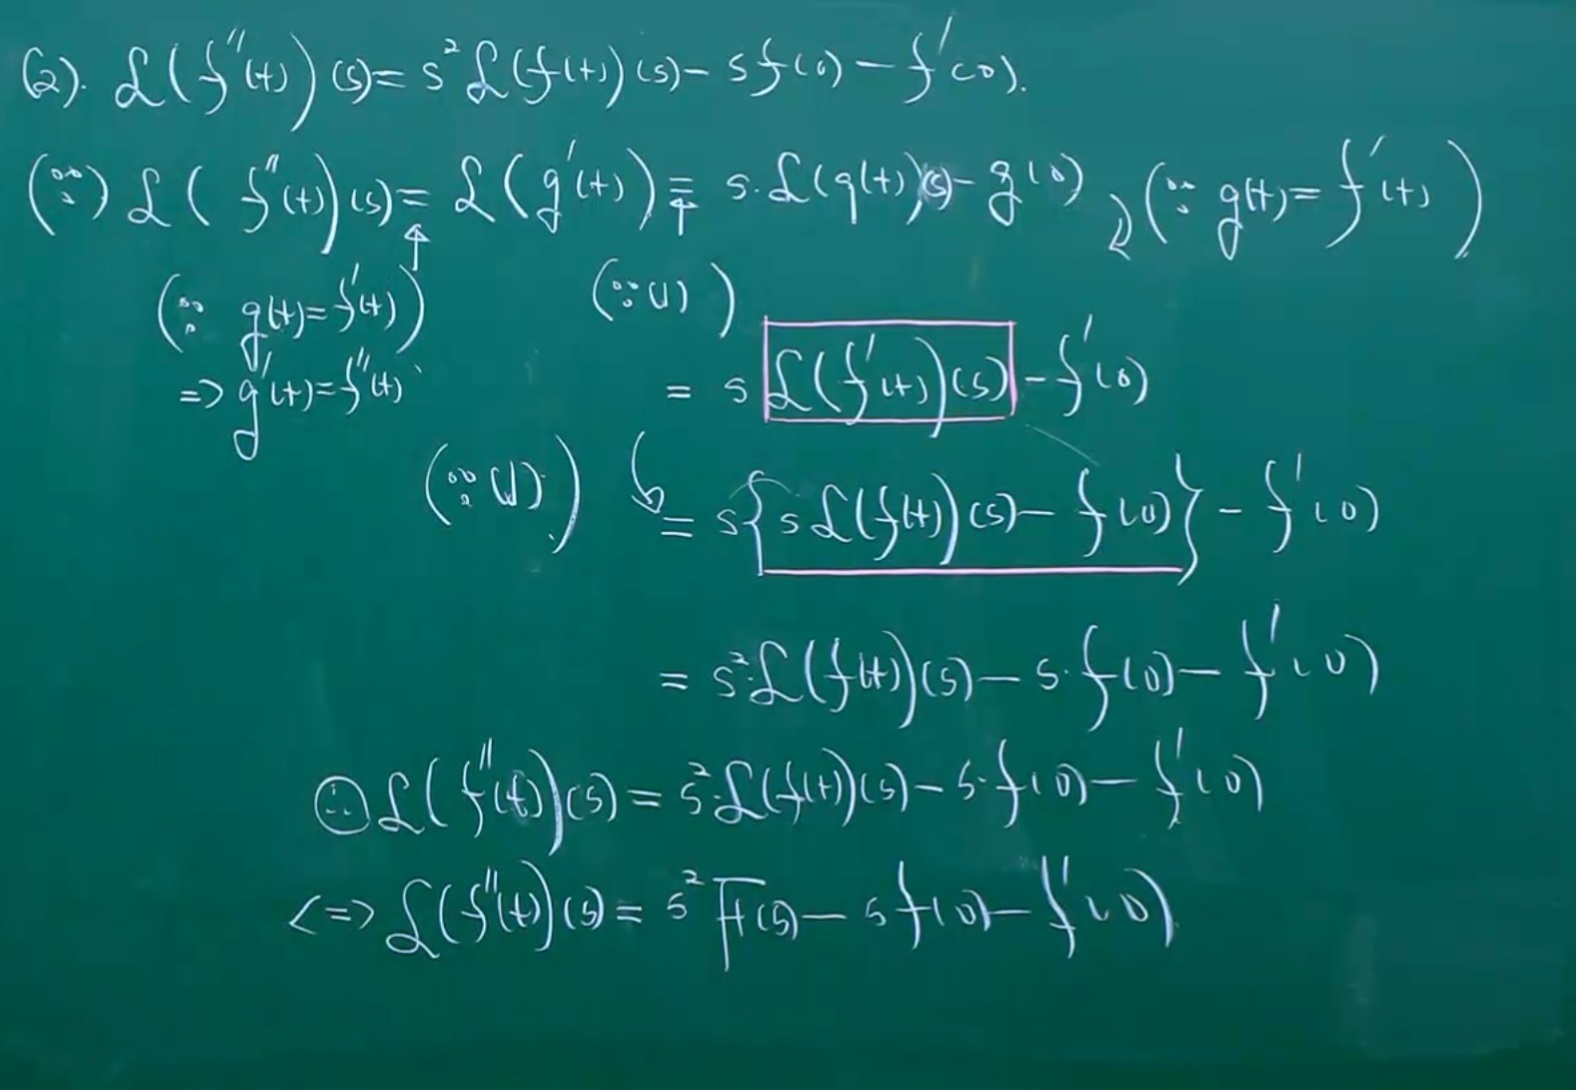 (2). ℒ(f''(t))(s) = s² ℒ(f(t))(s) − s f(0) − f'(0).
(∵) ℒ(f''(t))(s) = ℒ(g'(t)) = s·ℒ(g(t))(s) − g(0) (∵ g(t) = f'(t))
(∵ g(t) = f'(t)) (∵ (1))
⇒ g'(t) = f''(t) = s ℒ(f'(t))(s) − f'(0)
(∵ (1).) = s{s ℒ(f(t))(s) − f(0)} − f'(0)
= s²·ℒ(f(t))(s) − s·f(0) − f'(0)
∴ ℒ(f''(t))(s) = s²·ℒ(f(t))(s) − s·f(0) − f'(0)
<=> ℒ(f''(t))(s) = s² F(s) − s f(0) − f'(0)